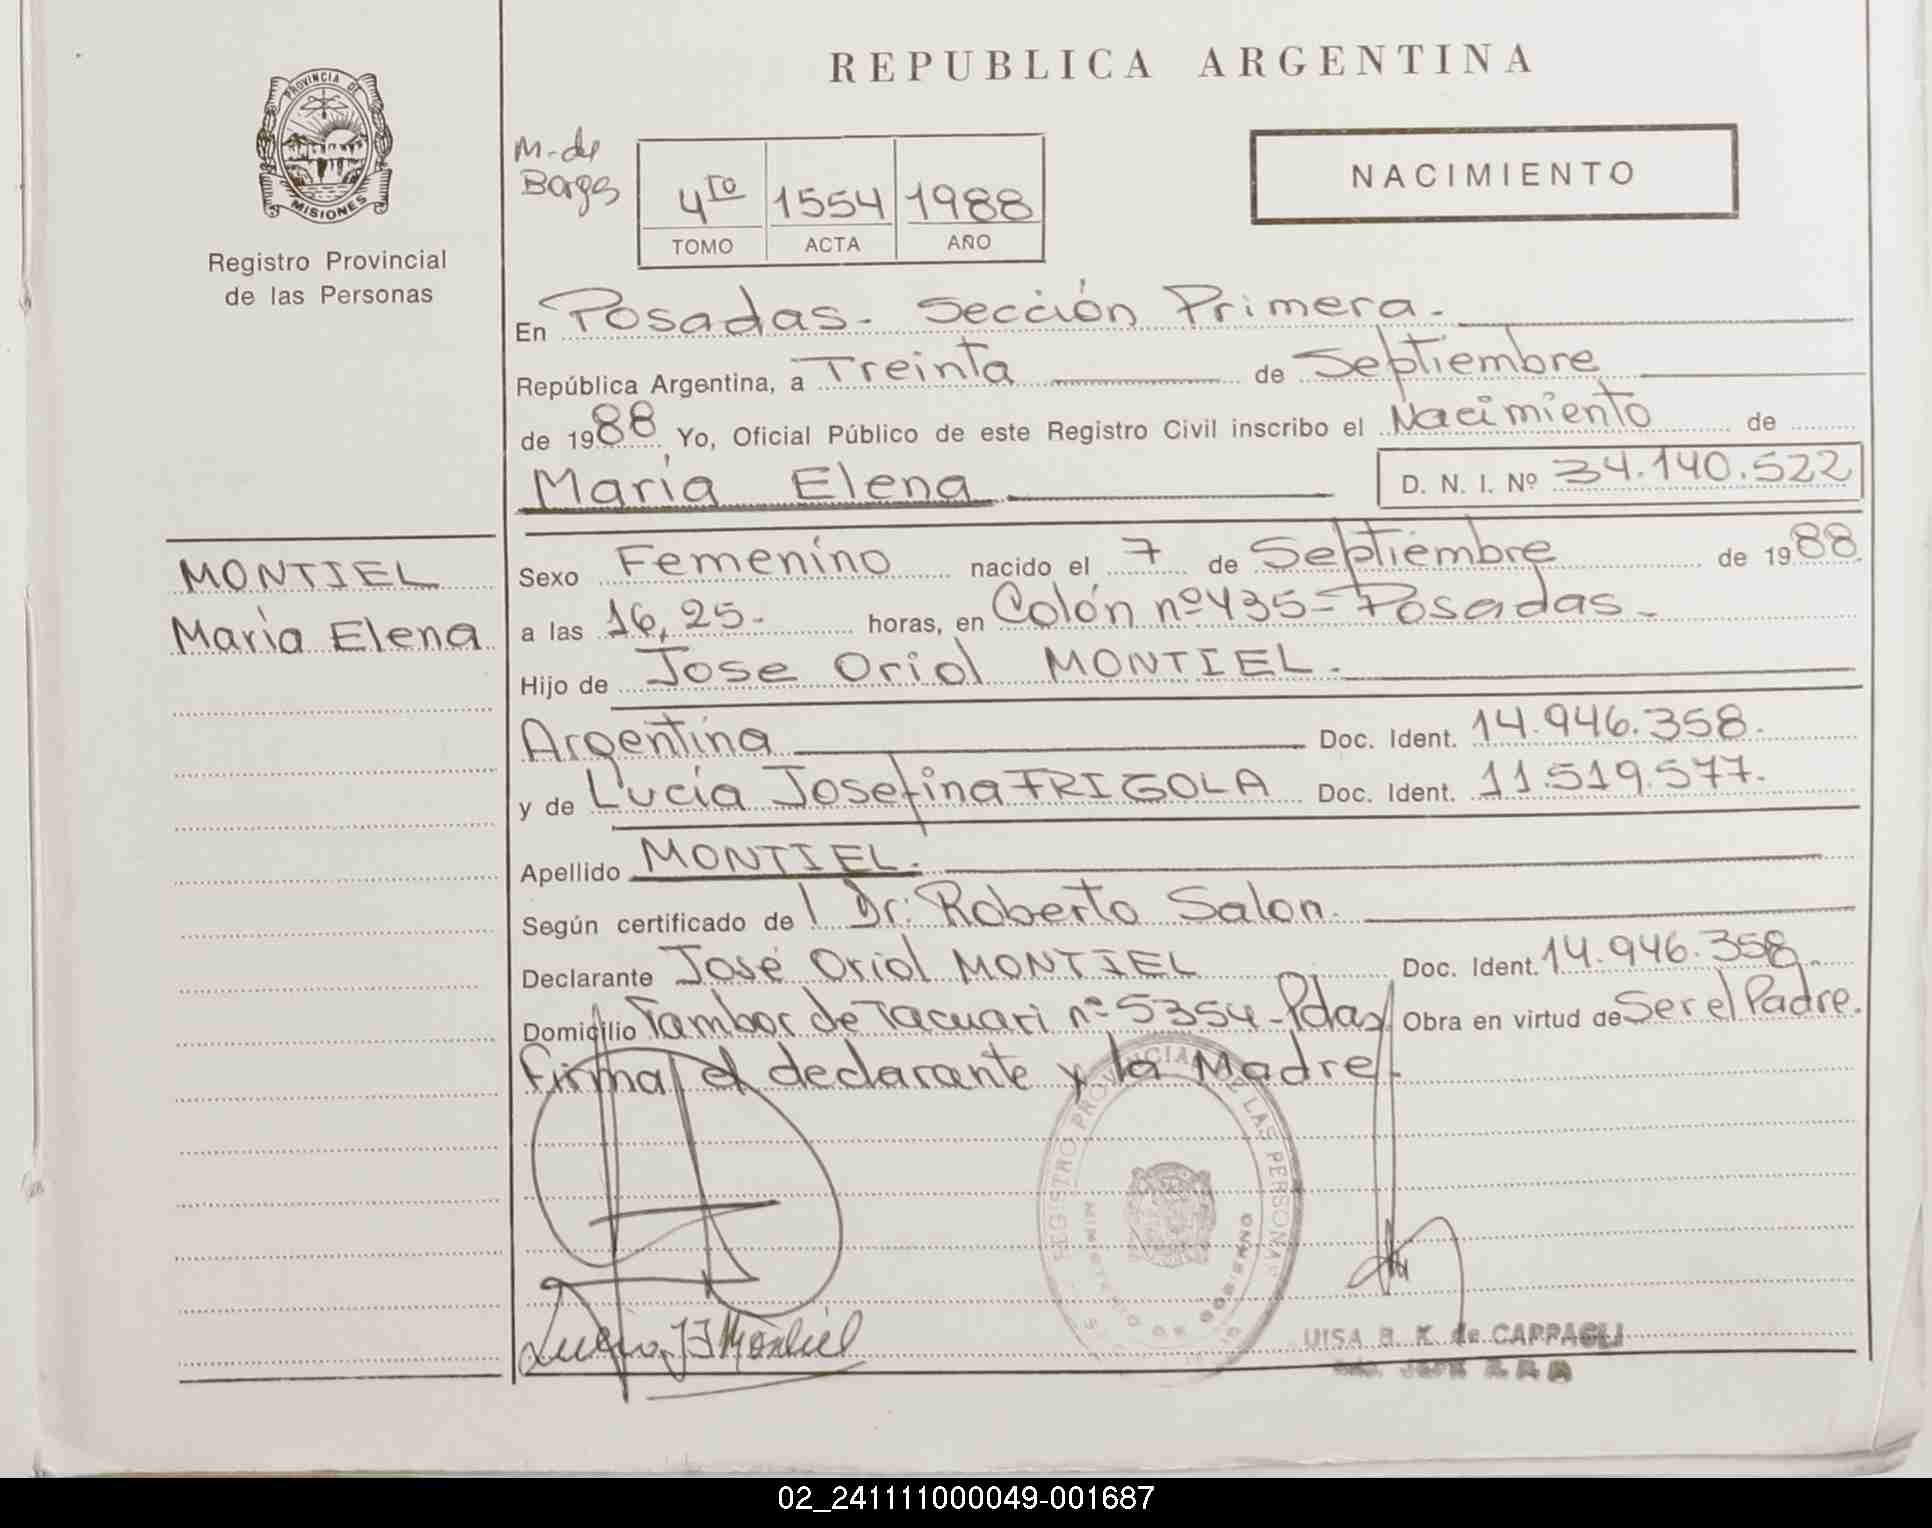 REPUBLICA ARGENTINA
PROVINCIA DE MISIONES
Registro Provincial
de las Personas
M. de
Borges
4to 1554 1988
TOMO ACTA AÑO
NACIMIENTO
En Posadas - Sección Primera.
República Argentina, a Treinta de Septiembre
de 1988 Yo, Oficial Público de este Registro Civil inscribo el Nacimiento de
María Elena D. N. I. Nº 34.140.522
MONTIEL
María Elena
Sexo Femenino nacido el 7 de Septiembre de 1988
a las 16,25. horas, en Colón nº 435 = Posadas -
Hijo de Jose Oriol MONTIEL.
Argentina Doc. Ident. 14.946.358.
y de Lucía Josefina FRIGOLA Doc. Ident. 11.519.577.
Apellido MONTIEL.
Según certificado de l Dr. Roberto Salon.
Declarante José Oriol MONTIEL Doc. Ident. 14.946.358.
Domicilio Tambor de Tacuari nº 5354 - Pdas. Obra en virtud de Ser el Padre.
Firma el declarante y la Madre.
REGISTRO PROVINCIAL DE LAS PERSONAS
MINISTERIO DE GOBIERNO
Lucia J F Montiel
UISA B. K. de CAPPAGLI
02_241111000049-001687